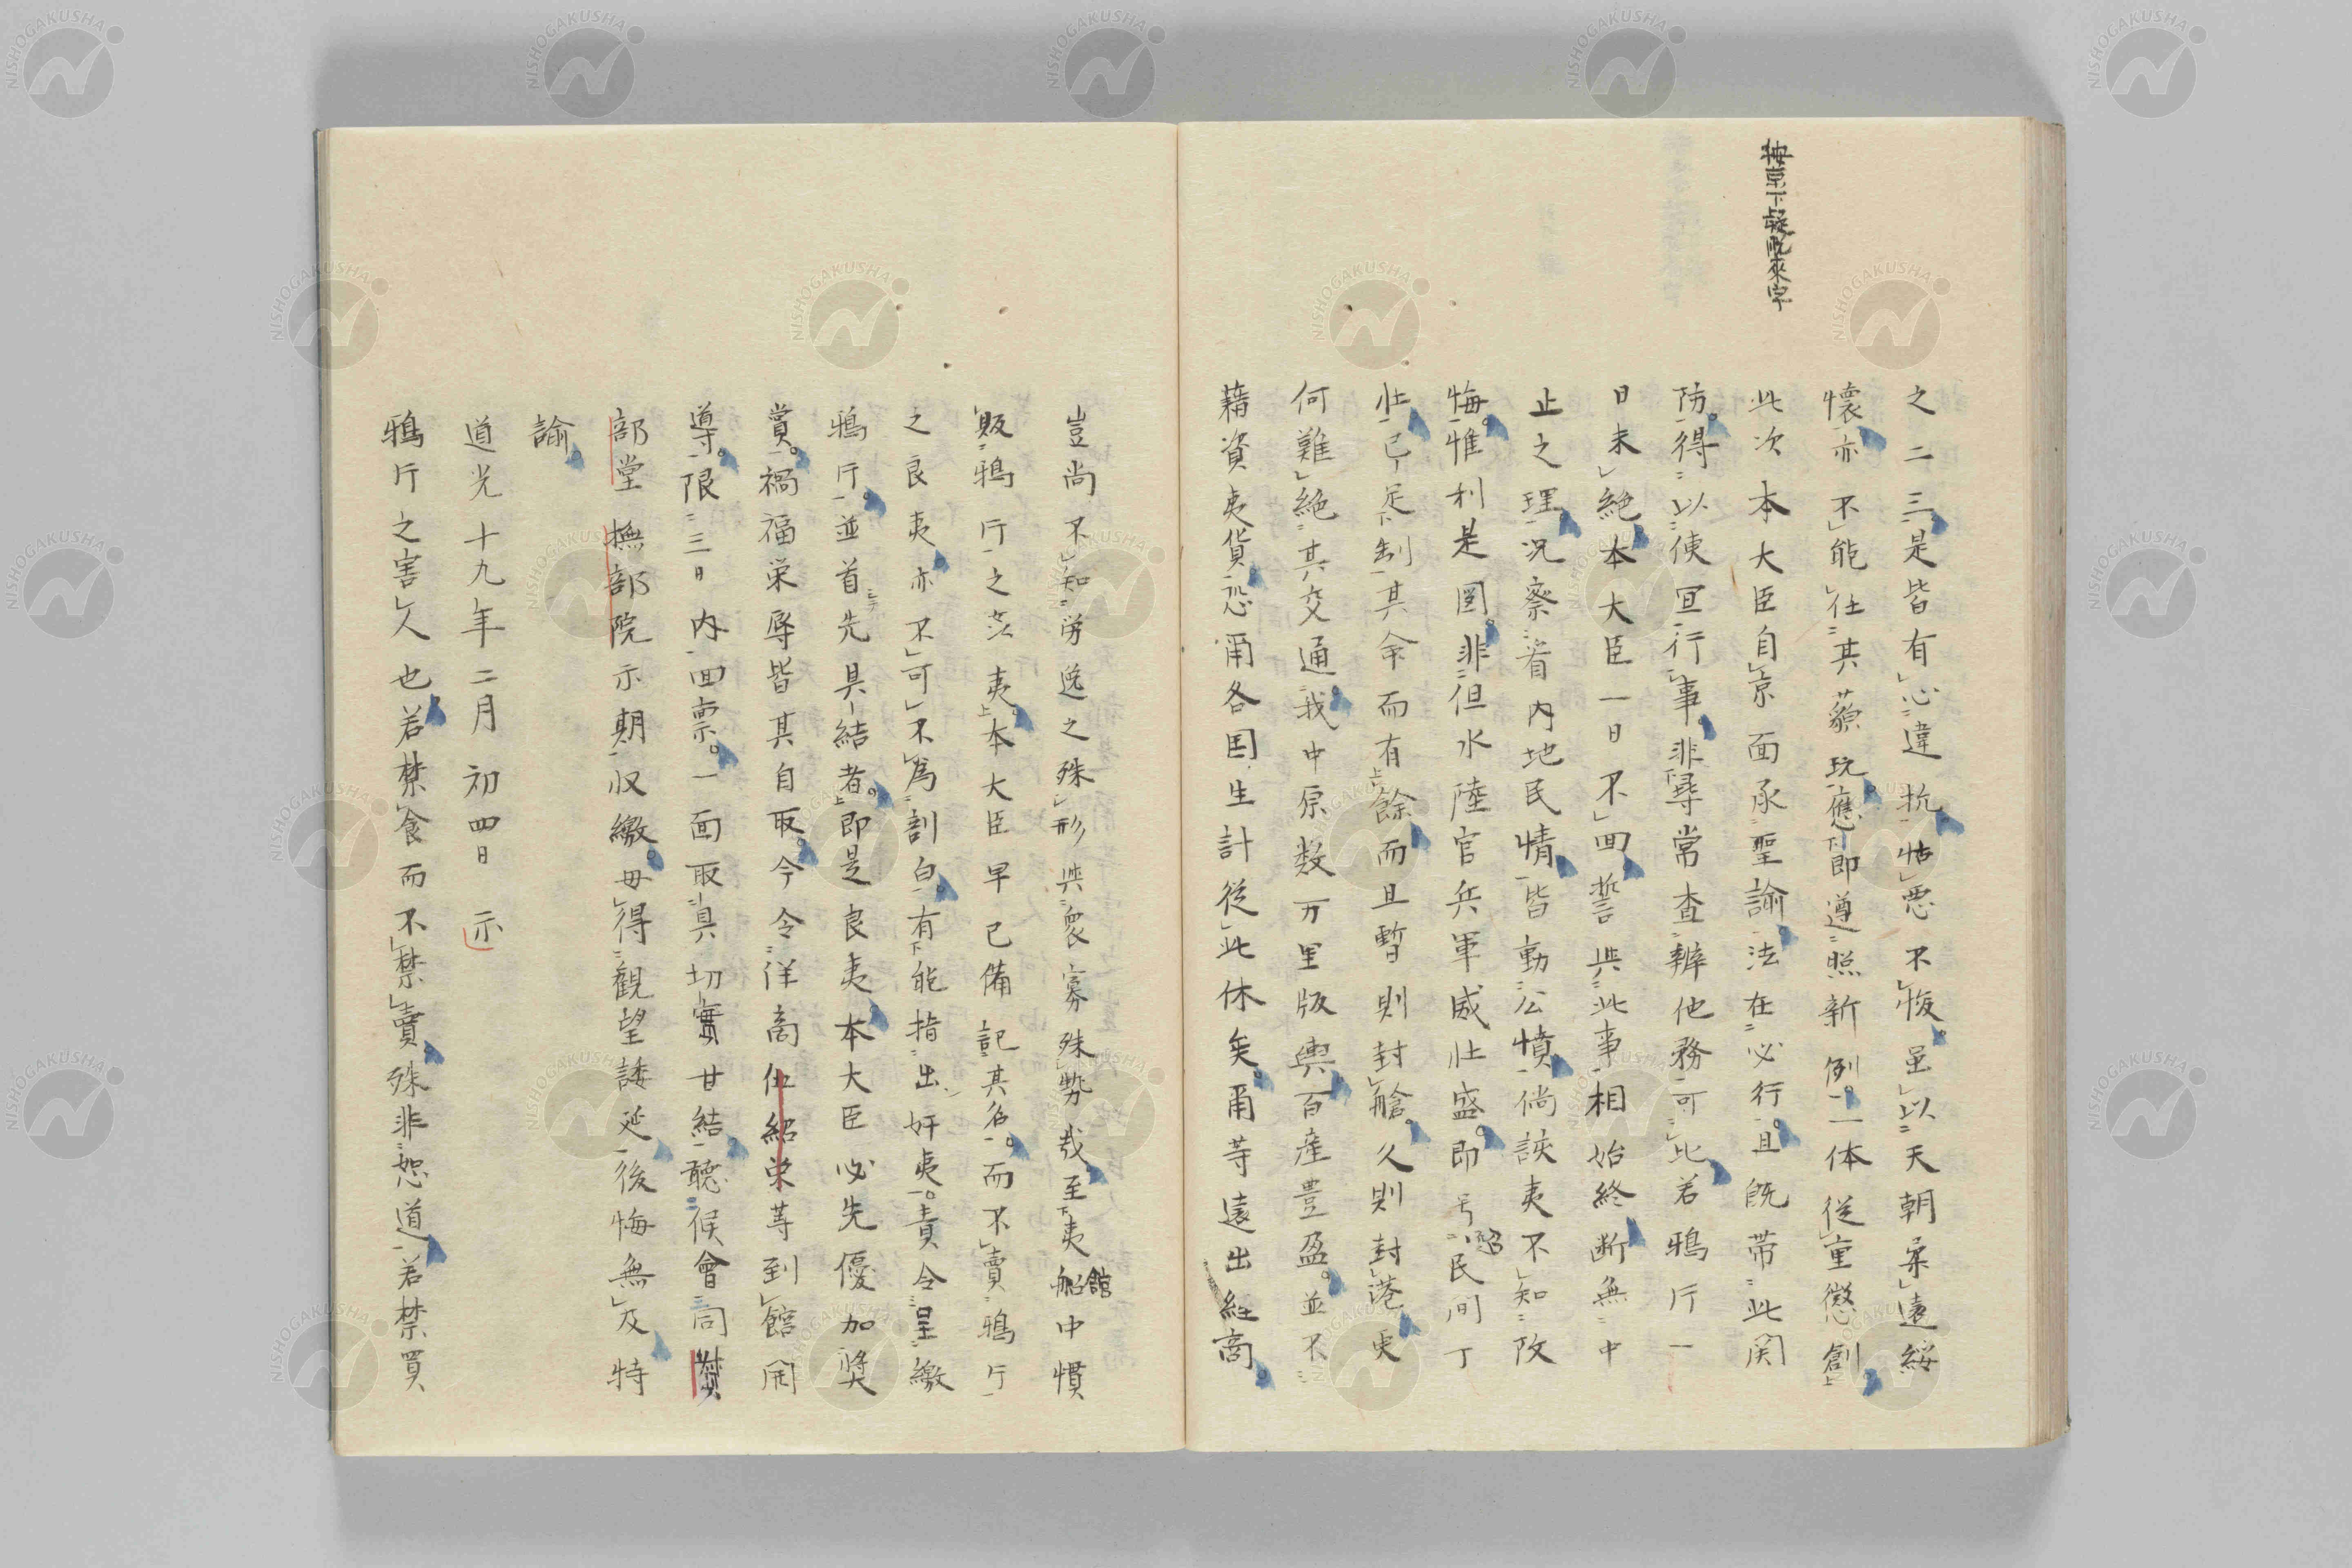 按京下疑脱來字
之二三是皆有心違抗怙悪不悛虽以天朝柔遠綏
懐亦不能任其藐玩應即遵照新例一体従重懲創
此次本大臣自京面承聖諭法在必行且既带此関
防得以使宜行事非尋常査辨他務可比若鴉片一
日未絶本大臣一日不回誓与此事相始終断無中
止之理况察看内地民情皆動公憤倘該夷不知改
悔惟利是圖非但水陸官兵軍威壮盛即号召民间丁
壮已足制其命而有餘而且暫則封艙久則封港更
何難絶其交通我中原数万里版輿百産豊盈並不
藉資夷貨恐甭各国生計従此休矣甭等遠出経商
豈尚不知労逸之殊形與衆寡殊勢哉至夷船館中慣
販鴉片之
夷本大臣早已備記其名而不賣鴉片
之良夷亦不可不為剖白有能指出奸夷責令呈繳
鴉片並首先具結者即是良夷本大臣必先優加奬
賞禍福栄辱皆其自取今令洋商伍紹栄等到館開
導限三日内回稟一面取具切實甘結聽候會同
部堂撫部院示期収繳毋得観望諉延後悔無及特
諭
道光十九年二月初四日 示
鴉片之害人也若禁食而不禁賣殊非恕道若禁買
NISHOGAKUSHA